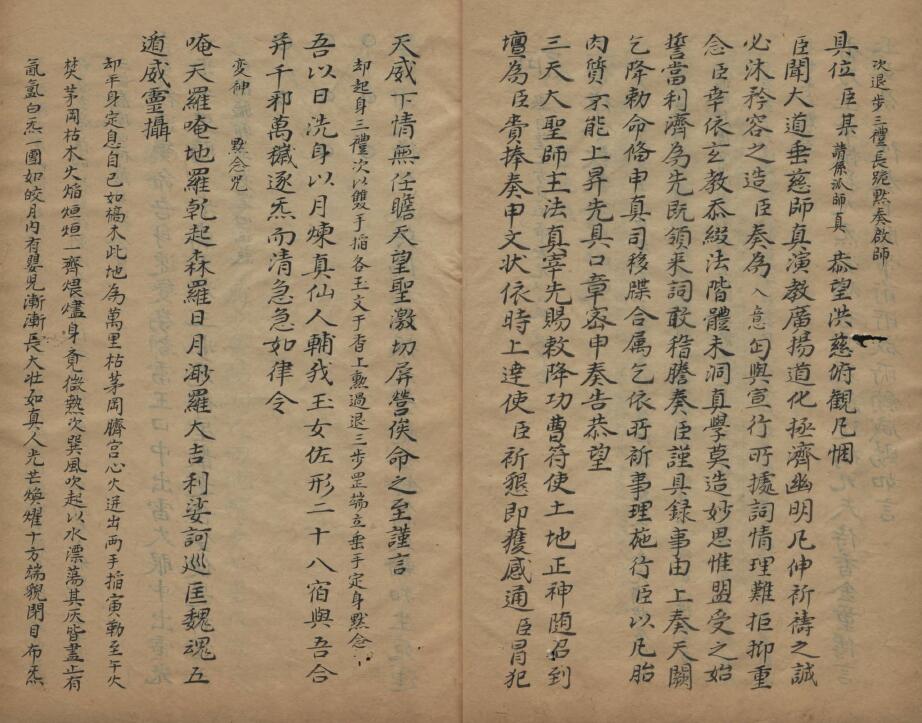 次退步三禮長跪默奏啟師
具位臣某請係派師真恭望洪慈俯観凡悃
臣聞大道垂慈師真演教廣揚道化拯濟幽明凡伸祈禱之誠
必沐矜容之造臣奏為入意匄與宣行所據詞情理難拒抑重
念臣幸依玄教忝綴法階體未洞真學莫造妙思惟盟受之始
誓當利濟為先既領来詞敢稽謄奏臣謹具録事由上奏天闕
乞降勅命俻申真司移牒合属乞依所祈事理施行臣以凡胎
肉質不能上昇先具口章密申奏告恭望
三天大聖師主法真宰先賜敕降功曹符使土地正神随召到
壇為臣賫捧奏申文状依時上達使臣祈懇即獲感通臣冒犯
天威下情無任瞻天望聖激切屏營俟命之至謹言
却起身三禮次以雙手掐各玉文于香上熏過退三步罡端立垂手定身黙念
吾以日洗身以月煉真仙人輔我玉女佐形二十八宿與吾合
并千邪萬穢逐炁而清急急如律令
変神 黙念咒
唵天羅唵地羅乾起森羅日月溮羅大吉利娑訶巡匡魏魂五
遁威靈攝
却平身定息自己如槁木此地為萬里枯茅岡臍宮心火迸出两手掐寅勒至午火
焚茅岡枯木火焰烜烜一齊煨燼身竟微熱次巽風吹起以水漂蕩其灰皆盡止有
氤氳白炁一團如皎月内有嬰児漸漸長大壮如真人光芒煥耀十方端貌閉目布炁